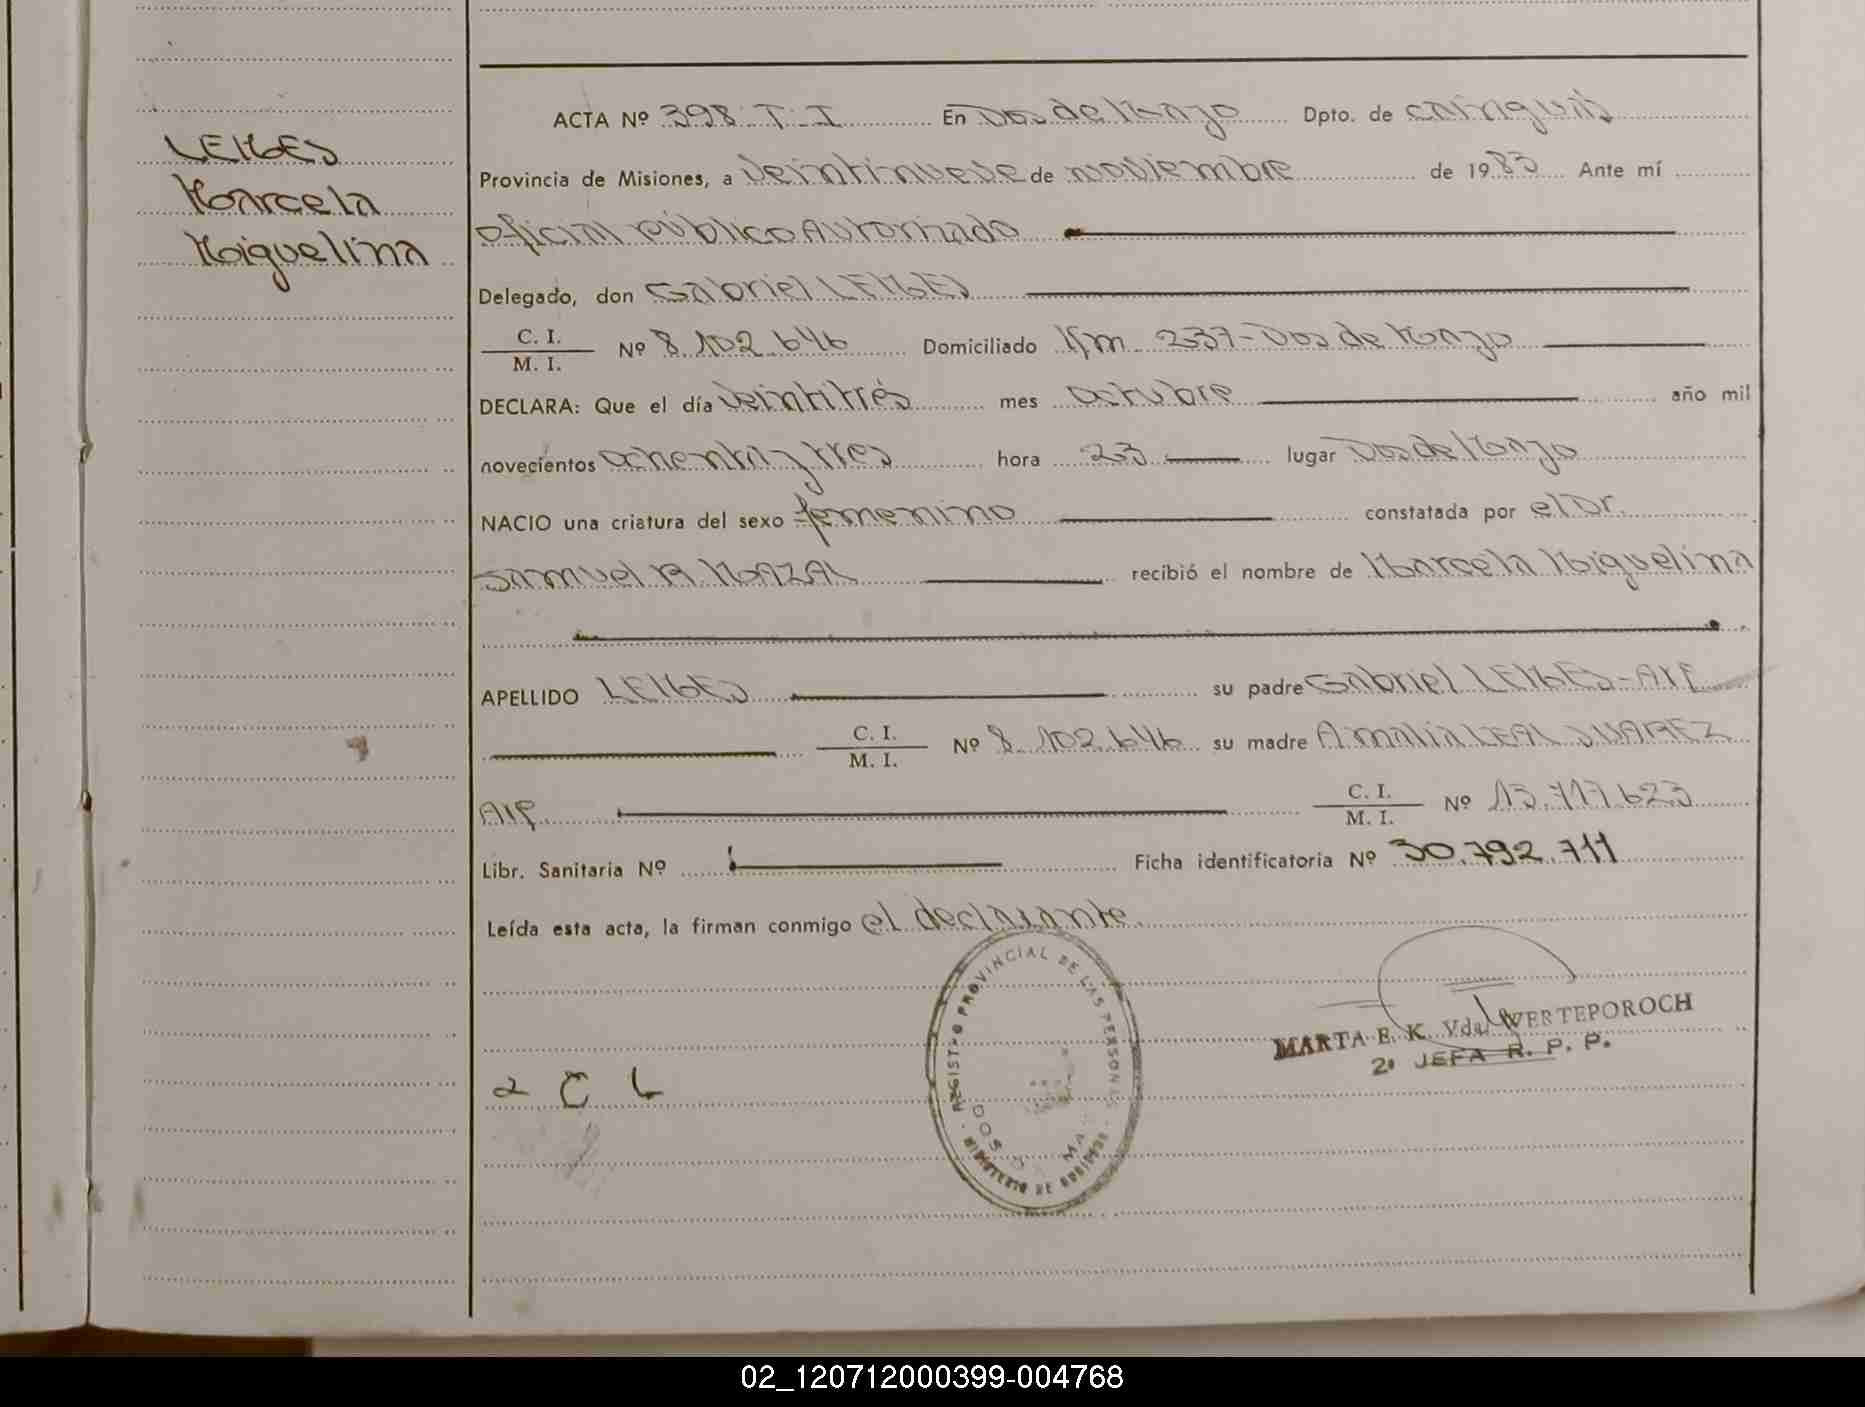 LEMES
Marcela
Miguelina
ACTA Nº 398 T-I En Dos de Mayo Dpto. de Cainguás
Provincia de Misiones, a veintinueve de noviembre de 1983 Ante mí
oficial público Autorizado
Delegado, don Gabriel LEMES
C. I.
M. I. Nº 8.102.646 Domiciliado Km 237-Dos de Mayo
DECLARA: Que el día veintitrés mes octubre año mil
novecientos ochenta y tres hora 23 lugar Dos de Mayo
NACIO una criatura del sexo femenino constatada por el Dr.
Samuel R. MONZAL recibió el nombre de Marcela Miguelina
APELLIDO LEMES su padre Gabriel LEMES-Arg
C. I.
M. I. Nº 8.102.646 su madre Amalia LEAL SUAREZ
Arg C. I.
M. I. Nº 13.717.623
Libr. Sanitaria Nº Ficha identificatoria Nº 30.792.711
Leída esta acta, la firman conmigo el declarante.
REGISTRO PROVINCIAL DE LAS PERSONAS
DOS D MA
MINISTERIO DE GOBIERNO
MARTA E. K. Vda. WERTEPOROCH
2º JEFA R. P. P.
02_120712000399-004768